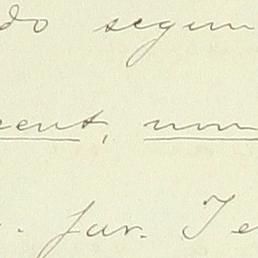 do segun
cent, non
. jur. Te